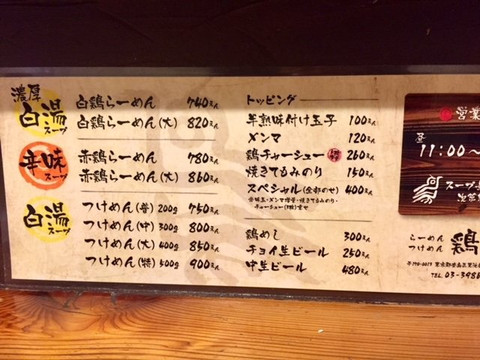 濃厚
白湯
スープ
白鶏らーめん 740えん
白鶏らーめん(大) 820えん
辛味
スープ
赤鶏らーめん 780えん
赤鶏らーめん(大) 860えん
白湯
スープ
つけめん(並)200g 750えん
つけめん(中)300g 800えん
つけめん(大)400g 850えん
つけめん(特)500g 900えん
トッピング
半熟味付け玉子 100えん
メンマ 120えん
鶏チャーシュー 260えん
焼きてるみのり 150えん
スペシャル(全部のせ) 400えん
鶏めし 300えん
チョイ生ビール 250えん
中生ビール 480えん
営業
11:00〜
スープ
らーめん
つけめん
鶏
TEL 03-398